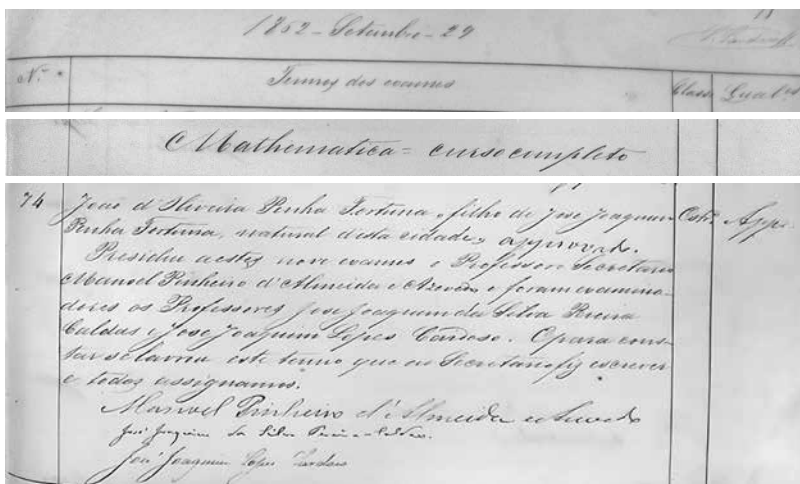 1862 - Setembro - 29
N.º Termos dos exames Classe Qual.es
Mathematica = curso completo
74 João d'Oliveira Penha Fortuna, filho de José Joaquim Estr.º App.
Penha Fortuna, natural desta cidade, approvado.
Presidiu a estes nove exames o Professor Secretario
Manoel Pinheiro d'Almeida e Azevedo e foram examina-
dores os Professores José Joaquim da Silva Pereira
Caldas e José Joaquim Lopes Cardoso. E para cons-
tar se lavrou este termo que eu Secretario fiz escrever
e todos assignamos.
Manoel Pinheiro d'Almeida e Azevedo
José Joaquim da Silva Pereira Caldas.
José Joaquim Lopes Cardoso